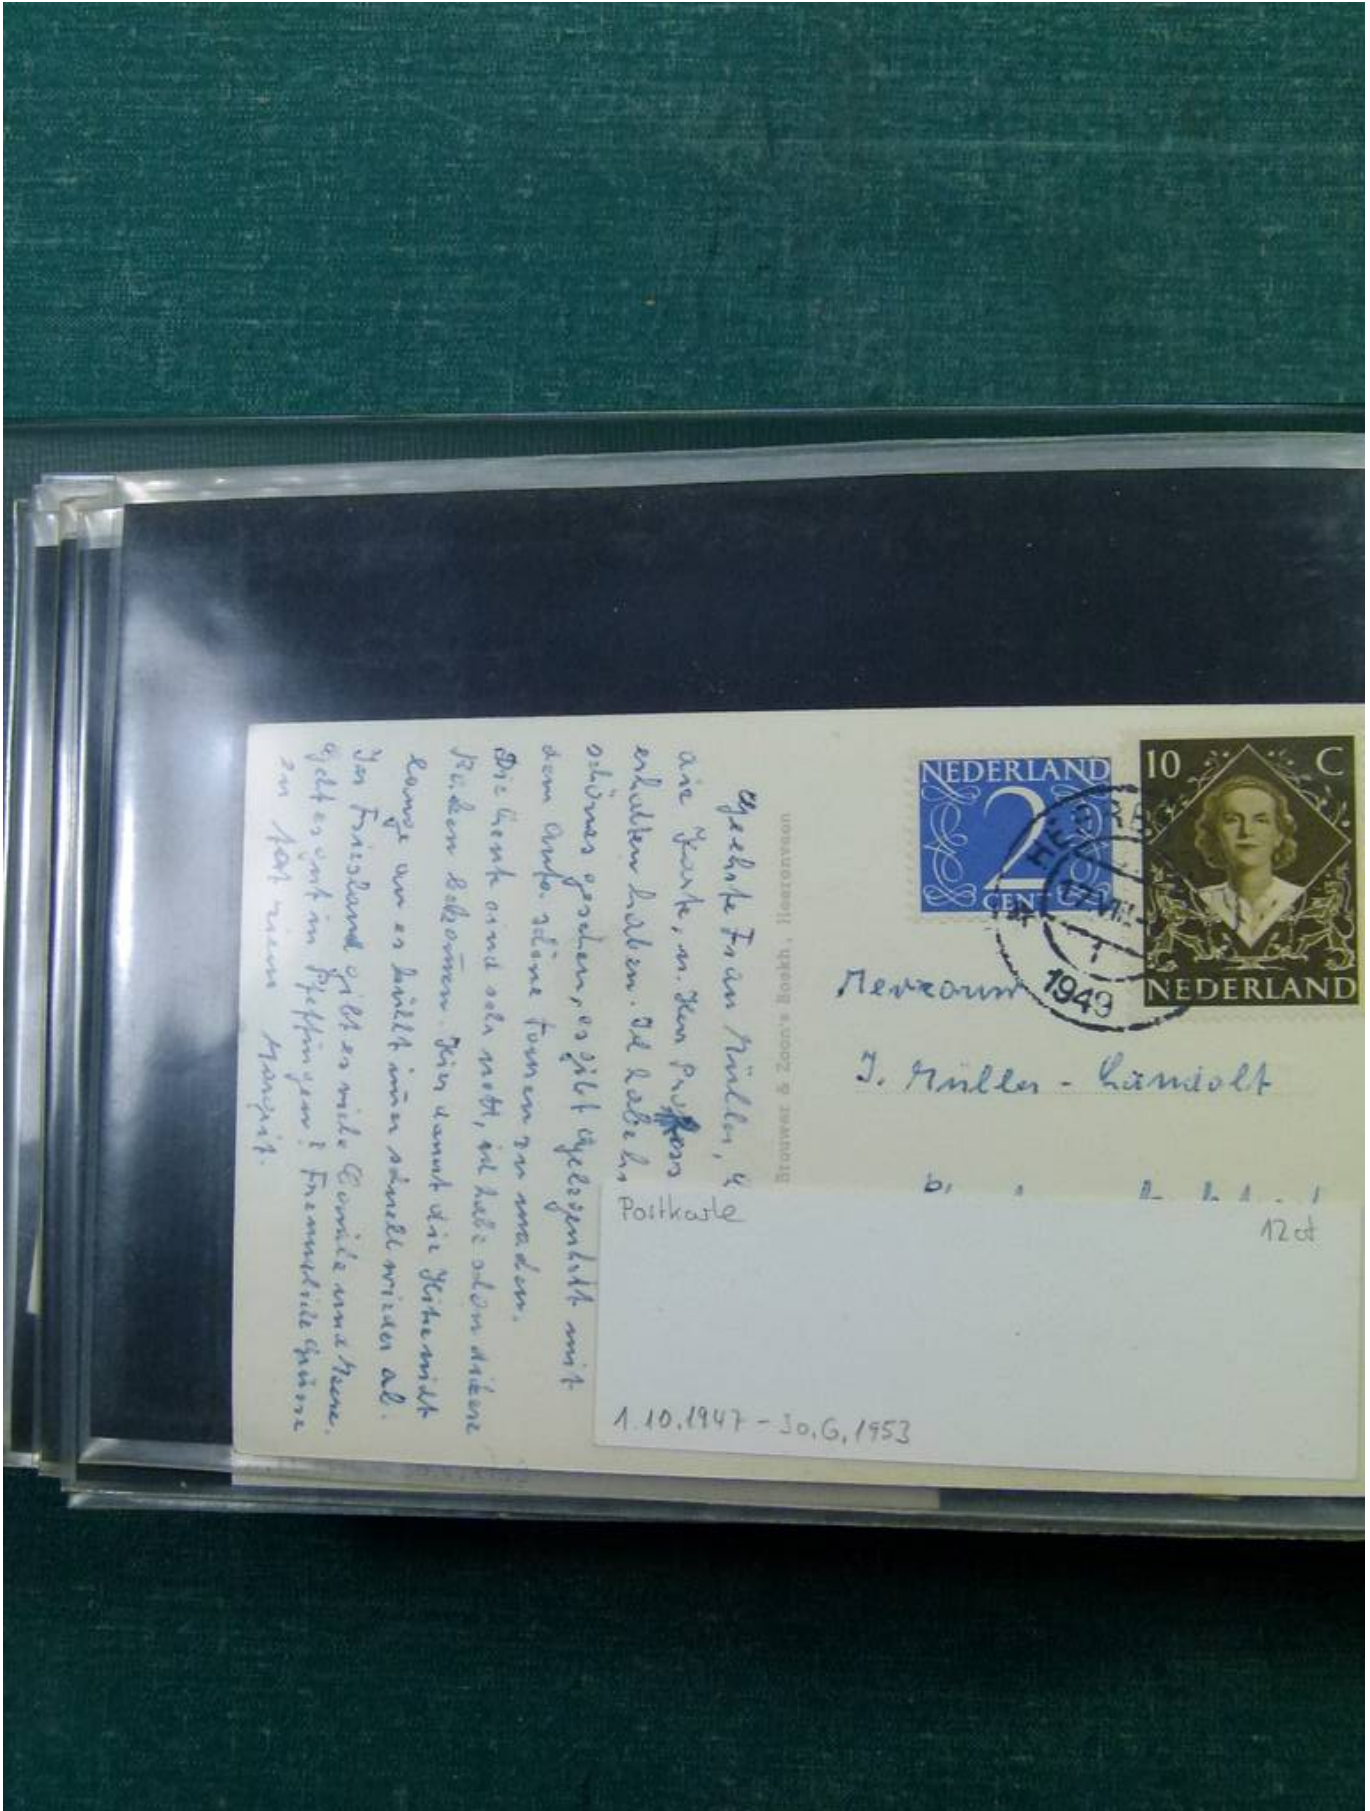 NEDERLAND
2
CENT
10 C
NEDERLAND
17.VIII
1949
Mevrouw
J. Müller - Landolt
Brouwer & Zoon's Boekh. Heerenveen
Geehrte Frau Müller,
die Karte, u. Herr
erhalten haben. Ich habe
schönes gesehen, es gibt Gelegenheit mit
dem Auto schöne Touren zu machen.
Die Leute sind sehr nett, ich habe schon dickere
Backen bekommen. Hier dauert die Hitze nicht
lange an es kühlt immer schnell wieder ab.
In Friesland gibt es viele Kanäle und Meere.
Geht es gut in Pfeffingen? Freundliche Grüsse
Margrit.
Postkarte
12 ct
1.10.1947 - 30.6.1953